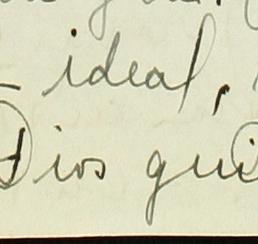 ideal,
Dios qui